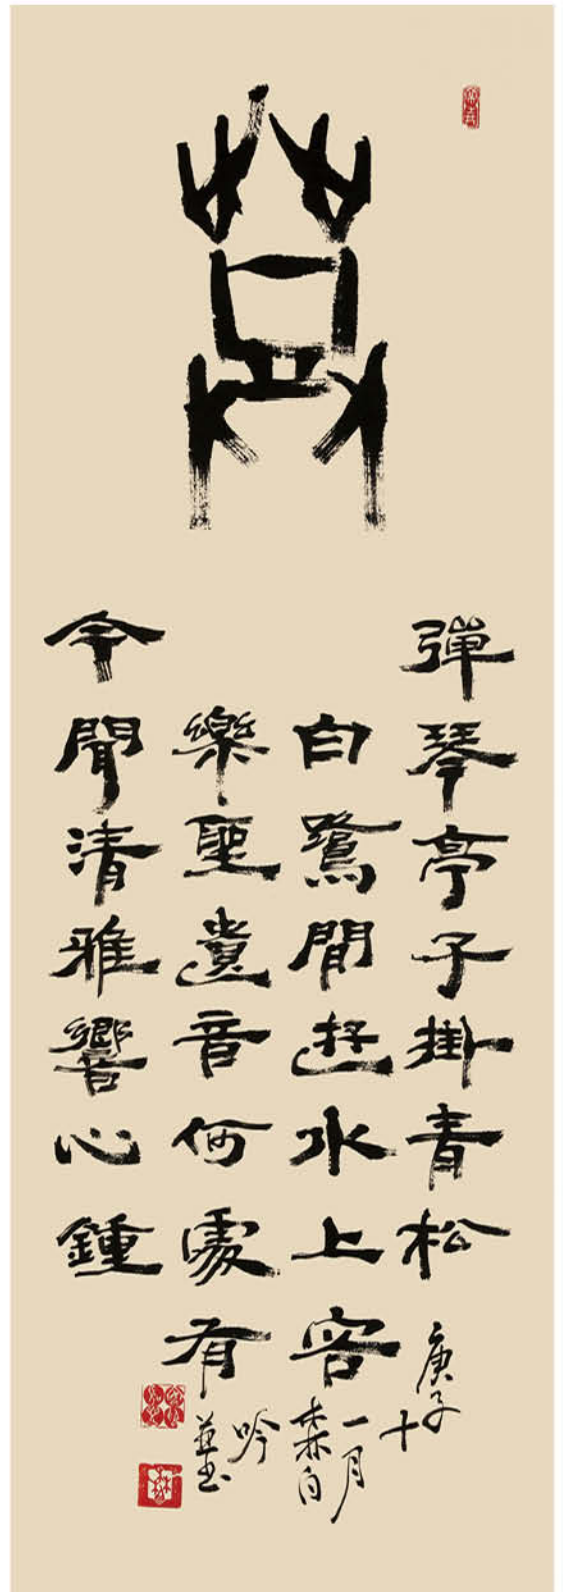 彈琴亭子掛青松
白鷺閒遊水上容
樂聖遺音何處有
今聞清雅響心鍾
庚子十
一月
森白
吟
並書